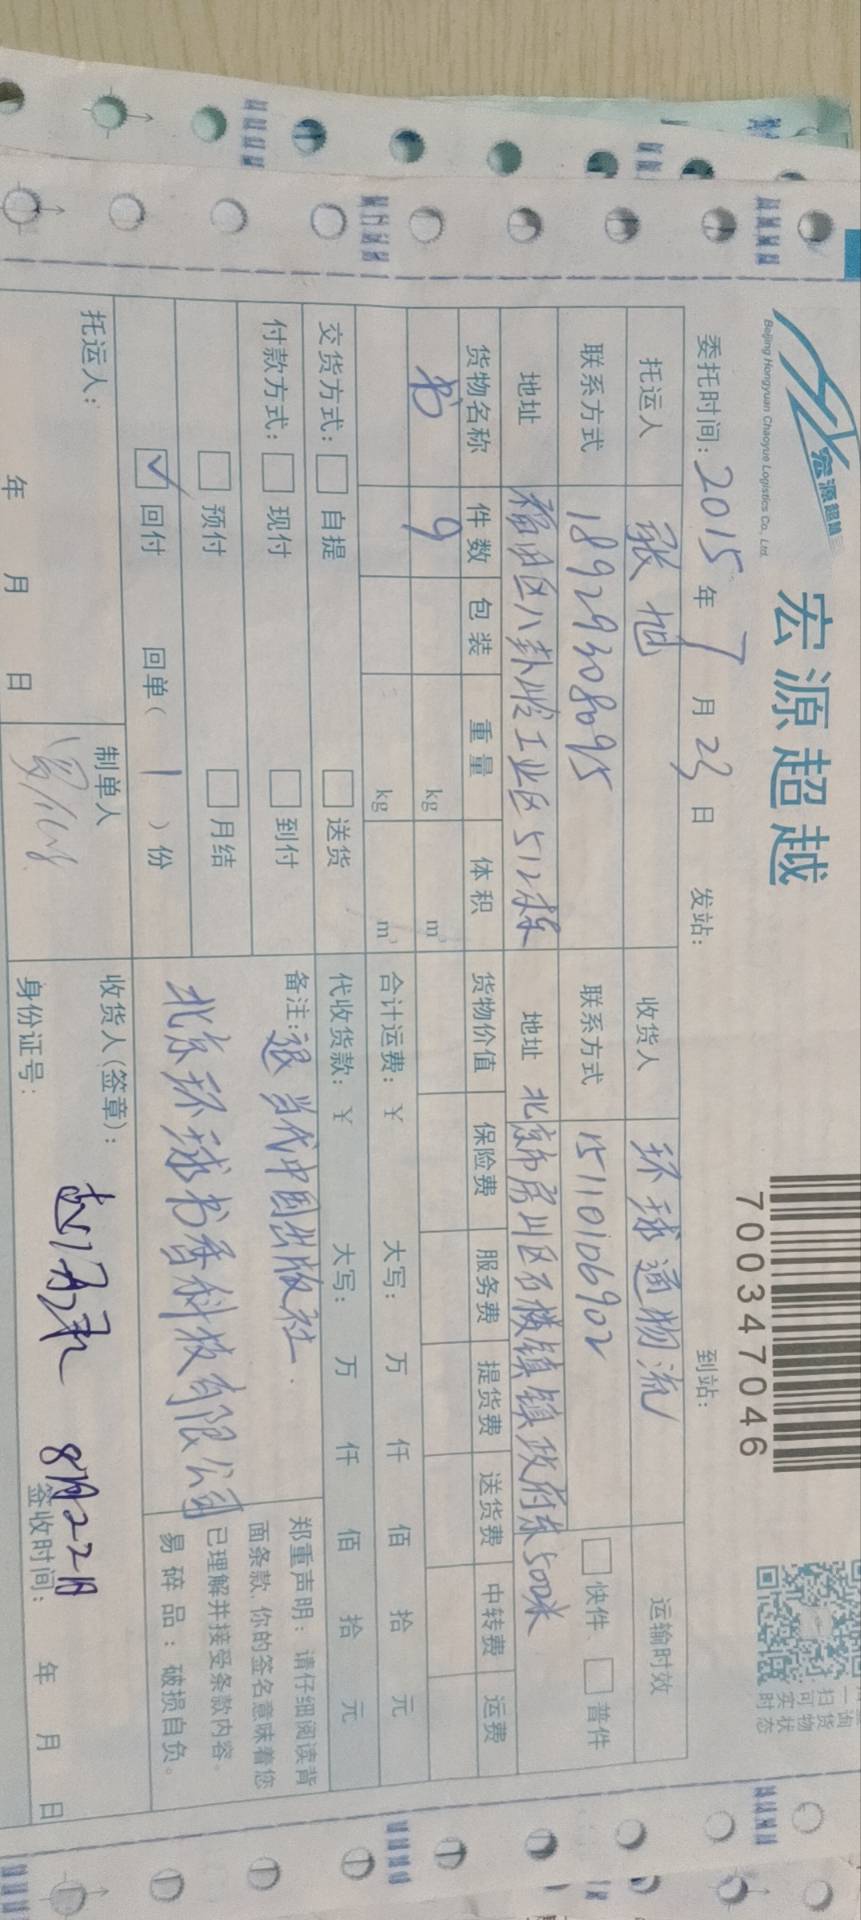 宏源超越
Beijing Hongyuan Chaoyue Logistics Co., Ltd.
宏源超越
700347046
委托时间: 2015 年 7 月 23 日 发站: 到站:
托运人 张旭 收货人 环球通物流 运输时效
联系方式 18929308095 联系方式 15110106902 快件 普件
地址 福田区八卦岭工业区512栋 地址 北京市房山区石楼镇镇政府东500米
货物名称 件数 包装 重量 体积 货物价值 保险费 服务费 提货费 送货费 中转费 运费
书 9 kg m³
kg m³ 合计运费: ¥ 大写: 万 仟 佰 拾 元
交货方式: 自提 送货 代收货款: ¥ 大写: 万 仟 佰 拾 元
付款方式: 现付 到付 备注: 退当代中国出版社.
预付 月结 北京环球书香科技有限公司
回付 回单( 1 )份
郑重声明: 请仔细阅读背
面条款,你的签名意味着您
已理解并接受条款内容。
易碎品: 破损自负。
托运人: 制单人 收货人(签章):
年 月 日 身份证号: 8月22日
签收时间: 年 月 日